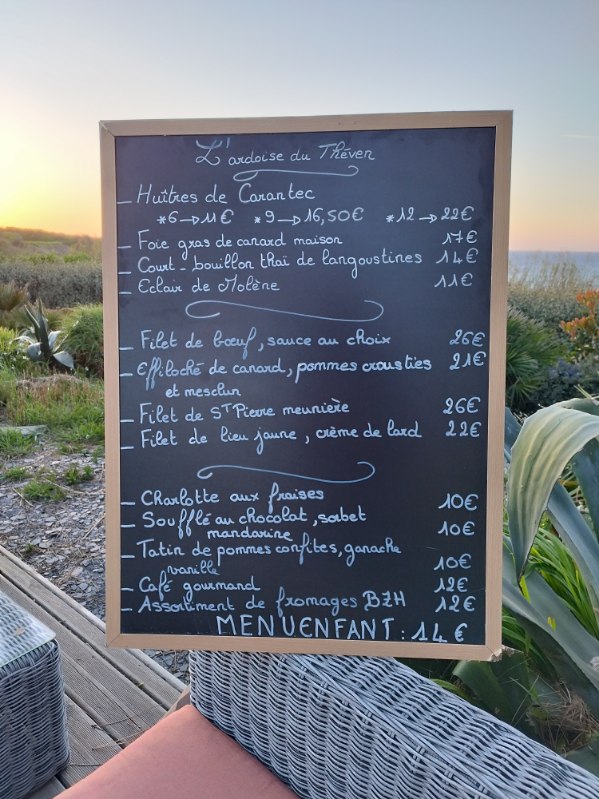 L'ardoise du Théven
_ Huîtres de Carantec
*6→11€ *9→16,50€ *12→22€
_ Foie gras de canard maison 17€
_ Court-bouillon thaï de langoustines 14€
_ Eclair de Molène 11€
_ Filet de bœuf, sauce au choix 26€
_ Effiloché de canard, pommes crousties 21€
et mesclun
_ Filet de ST Pierre meunière 26€
_ Filet de lieu jaune, crème de lard 22€
_ Charlotte aux fraises 10€
_ Soufflé au chocolat, sorbet 10€
mandarine
_ Tatin de pommes confites, ganache
vanille 10€
_ Café gourmand 12€
_ Assortiment de fromages BZH 12€
MENU ENFANT : 14 €